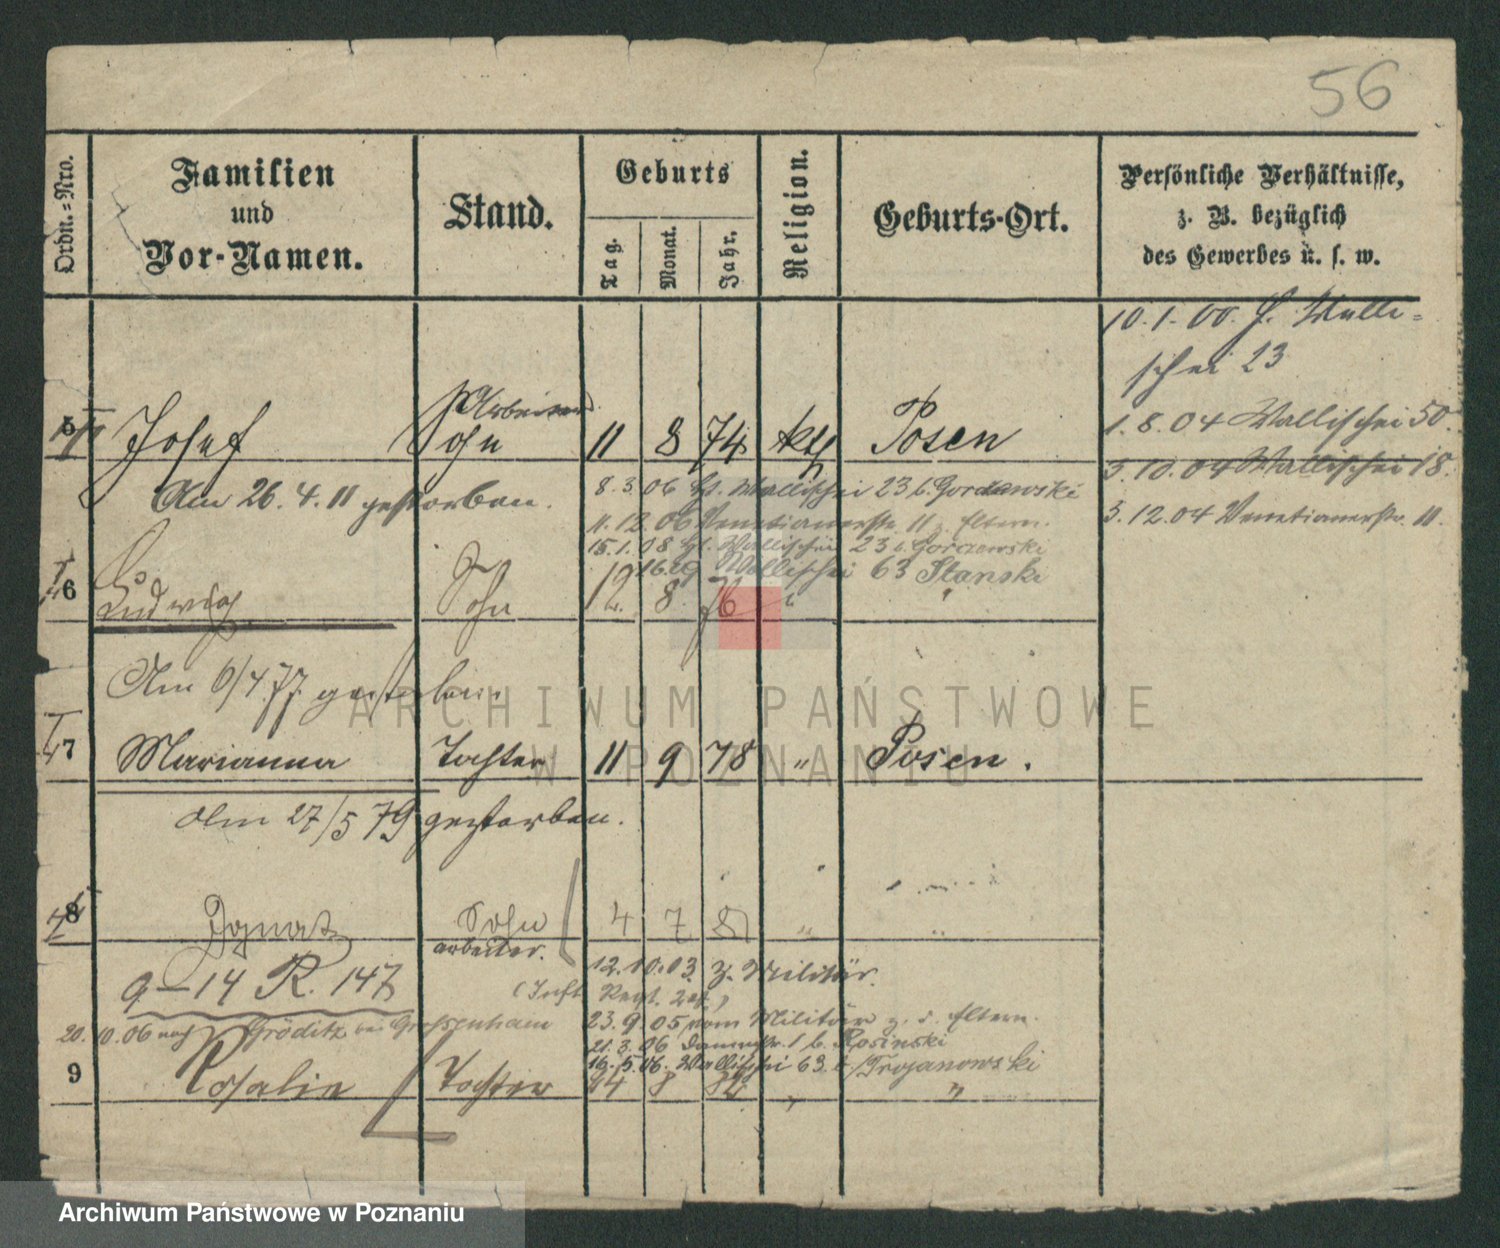 56
Ordn.-Nro.
Familien
und
Vor-Namen.
Stand.
Geburts
Tag.
Monat.
Jahr.
Religion.
Geburts-Ort.
Persönliche Verhältnisse,
z. B. bezüglich
des Gewerbes u. s. w.
10.1.00. H. Walli=
schei 23
Arbeiter
5 Josef Sohn 11 8 74 kth Posen
1.8.04 Wallischei 50.
3.10.04 Wallischei 18.
Am 26.4.11 gestorben.
8.3.06 Gr. Wallischei 23 b. Gorczewski
3.12.04 Venetianerstr. 11.
11.12.06 Venetianerstr. 11 z. Eltern.
15.1.08 Gr. Wallischei 23 b. Gorczewski
Wallischei 63 Stanski
6 Ludwig Sohn 12. 8 76 "
Am 6/4 77 gestorben.
7 Marianna Tochter 11 9 78 " Posen.
Am 27/5 79 gestorben.
8 Ignatz Sohn 4 7 81 " "
arbeiter.
9-14 R. 147
12.10.03 z. Militär.
(Inft. Regt.
20.10.06 nach Gröditz bei Großenhain
23.9.05 vom Militär z. d. Eltern.
21.3.06 Dammstr. 1 b. Rosinski
16.5.06. Wallischei 63. b. Trojanowski
9 Rosalie Tochter 24 8 82 "
ARCHIWUM PAŃSTWOWE
W POZNANIU
Archiwum Państwowe w Poznaniu